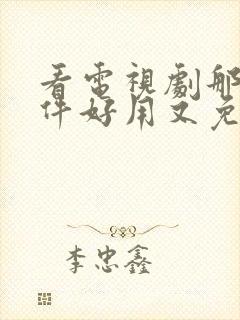 看電視劇那
件好用又免
李忠鑫